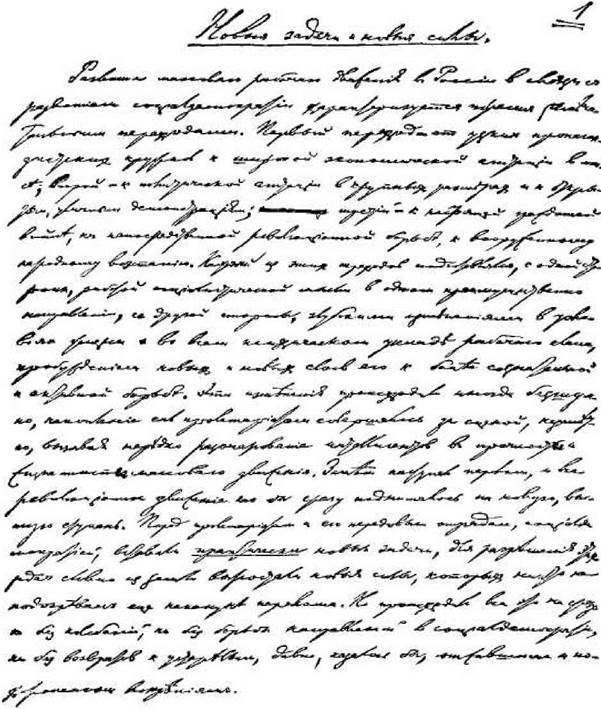 1
Новыя задачи и новыя силы.
Развитіе массоваго рабочаго движенія в Россіи в связи с
развитіем соціалдемократіи характеризуется тремя замѣча-
тельными переходами. Первый переход – от узких пропаган-
дистских кружков к широкой экономической агитаціи в мас-
сѣ; второй – к политической агитаціи в крупных размѣрах и к откры-
тым, уличным демонстраціям; третій – к настоящей гражданской
войнѣ, к непосредственной революціонной борьбѣ, к вооруженному
народному возстанію. Каждый из этих переходов подготовлялся, с одной сто-
роны, работой соціалистической мысли в одном преимущественно
направленіи, с другой стороны, глубокими измѣненіями в усло-
віях жизни и во всем психическом укладѣ рабочаго класса,
пробужденіем новых и новых слоев его к болѣе сознательной
и активной борьбѣ. Эти измѣненія происходили иногда безшум-
но, накопленіе сил пролетаріатом совершалось за сценой, незамѣт-
но, вызывая нерѣдко разочарованіе интеллигентов в прочности и
жизненности массоваго движенія. Затѣм наступал перелом, и все
революціонное движеніе как бы сразу поднималось на новую, выс-
шую ступень. Перед пролетаріатом и его передовым отрядом, соціалде-
мократіей, вставали практически новыя задачи, для разрѣшенія этих
задач словно из земли выростали новыя силы, которых никто не
подозрѣвал еще наканунѣ перелома. Но происходило все это не сразу,
не без колебаній, не без борьбы направленій в соціалдемократіи,
не без возвратов к устарѣлым, давно, казалось бы, отжившим и по-
хороненным воззрѣніям.